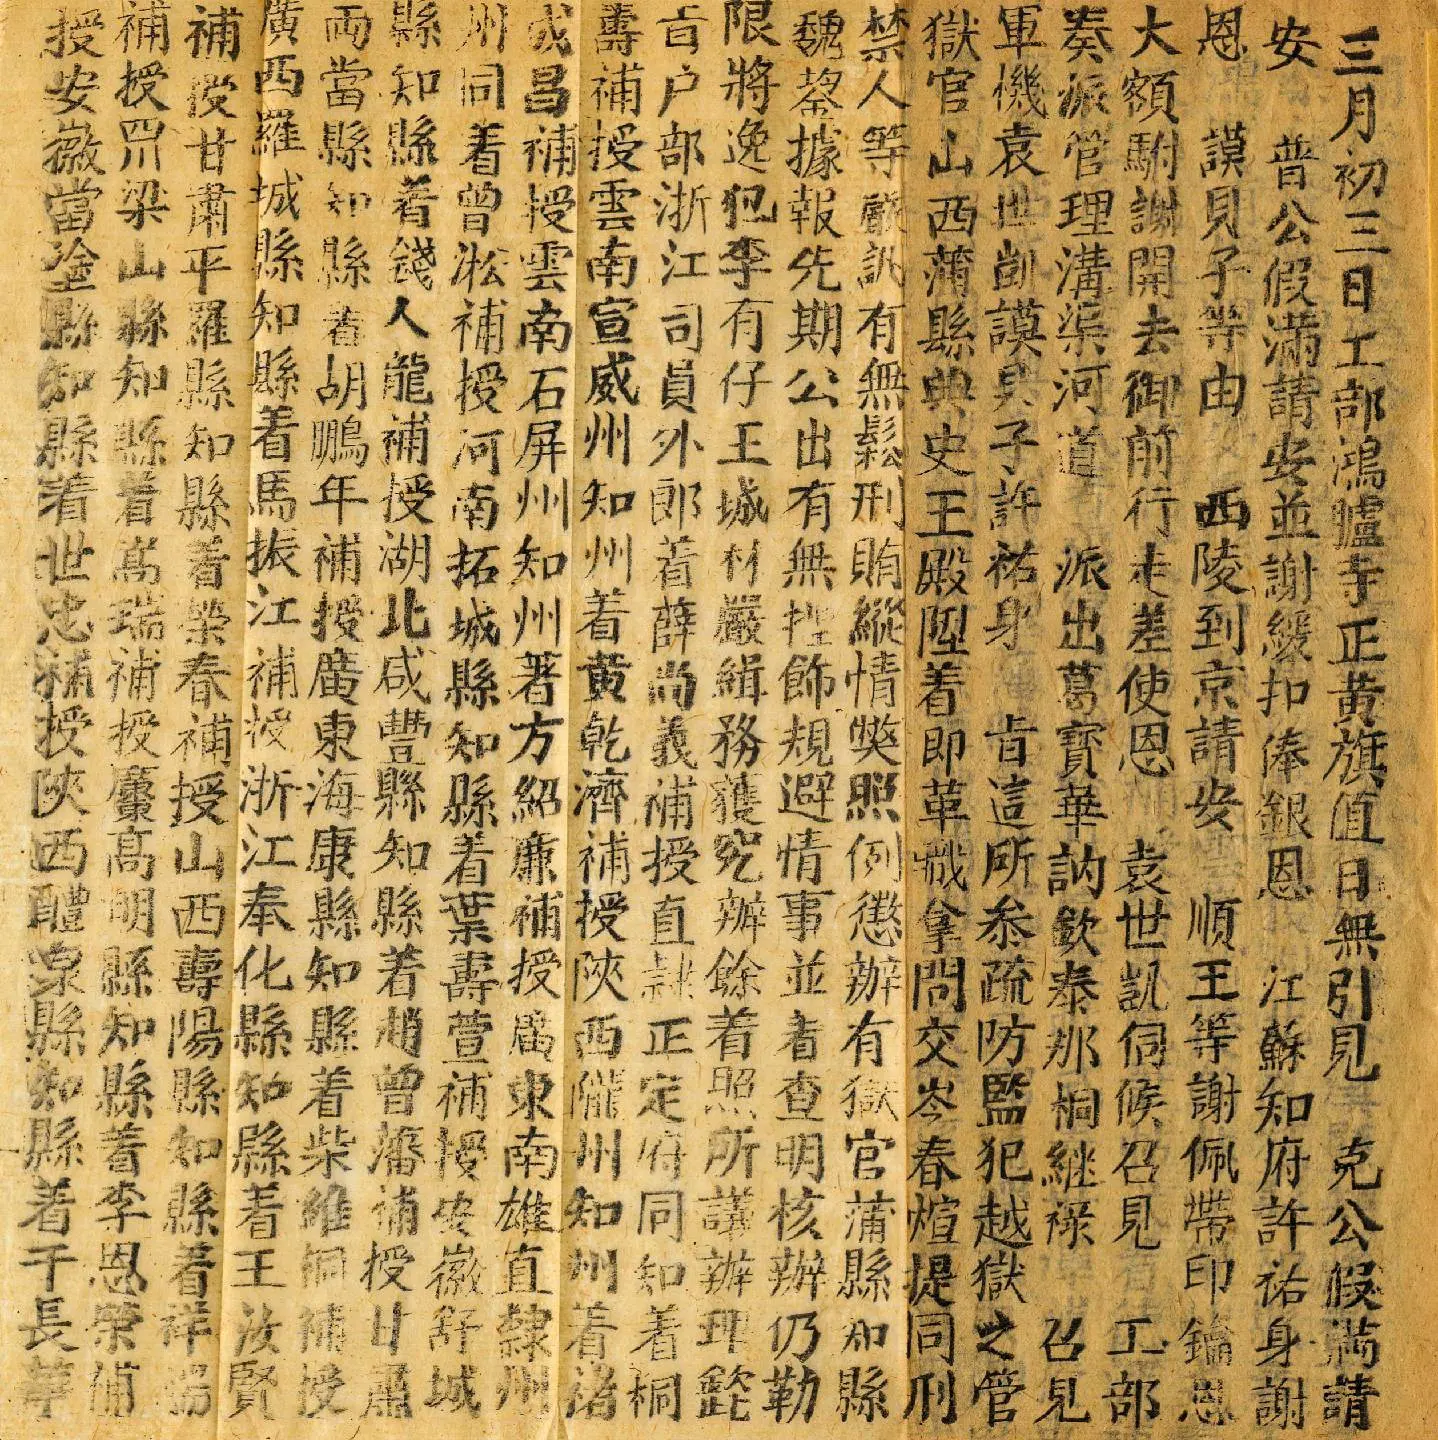 三月初三日工部鴻臚寺正黃旗值日無引見　克公假滿請
安　普公假滿請安並謝緩扣俸銀恩　江蘇知府許祐身謝
恩　謨貝子等由　西陵到京請安　順王等謝佩帶印鑰恩
大額駙謝開去御前行走差使恩　袁世凱伺候召見　工部
奏派管理溝渠河道　派出葛寶華訥欽泰那桐繼祿　召見
軍機袁世凱謨貝子許祐身　旨這所叅疏防監犯越獄之管
獄官山西蒲縣典史王殿陞着即革職拿問交岑春煊提同刑
禁人等嚴訊有無鬆刑賄縱情獘照例懲辦有獄官蒲縣知縣
魏鋆據報先期公出有無揑飾規避情事並着查明核辦仍勒
限將逸犯李有仔王城材嚴緝務獲究辦餘着照所議辦理
旨户部浙江司員外郎着薛尚義補授直隷正定府同知着桐
壽補授雲南宣威州知州着黃乾濟補授陝西隴州知州着褚
成昌補授雲南石屏州知州著方紹廉補授廣東南雄直隸州
州同着曾淞補授河南拓城縣知縣着葉壽萱補授安徽舒城
縣知縣着錢人龍補授湖北咸豐縣知縣着趙曾藩補授甘肅
両當縣知縣着胡鵬年補授廣東海康縣知縣着柴維桐補授
廣西羅城縣知縣着馬振江補授浙江奉化縣知縣着王汝賢
補授甘肅平羅縣知縣着榮春補授山西壽陽縣知縣着祥瑞
補授四川梁山縣知縣着高瑞補授廣東高明縣知縣着李恩榮補
授安徽當塗縣知縣着世忠補授陝西醴泉縣知縣着于長華